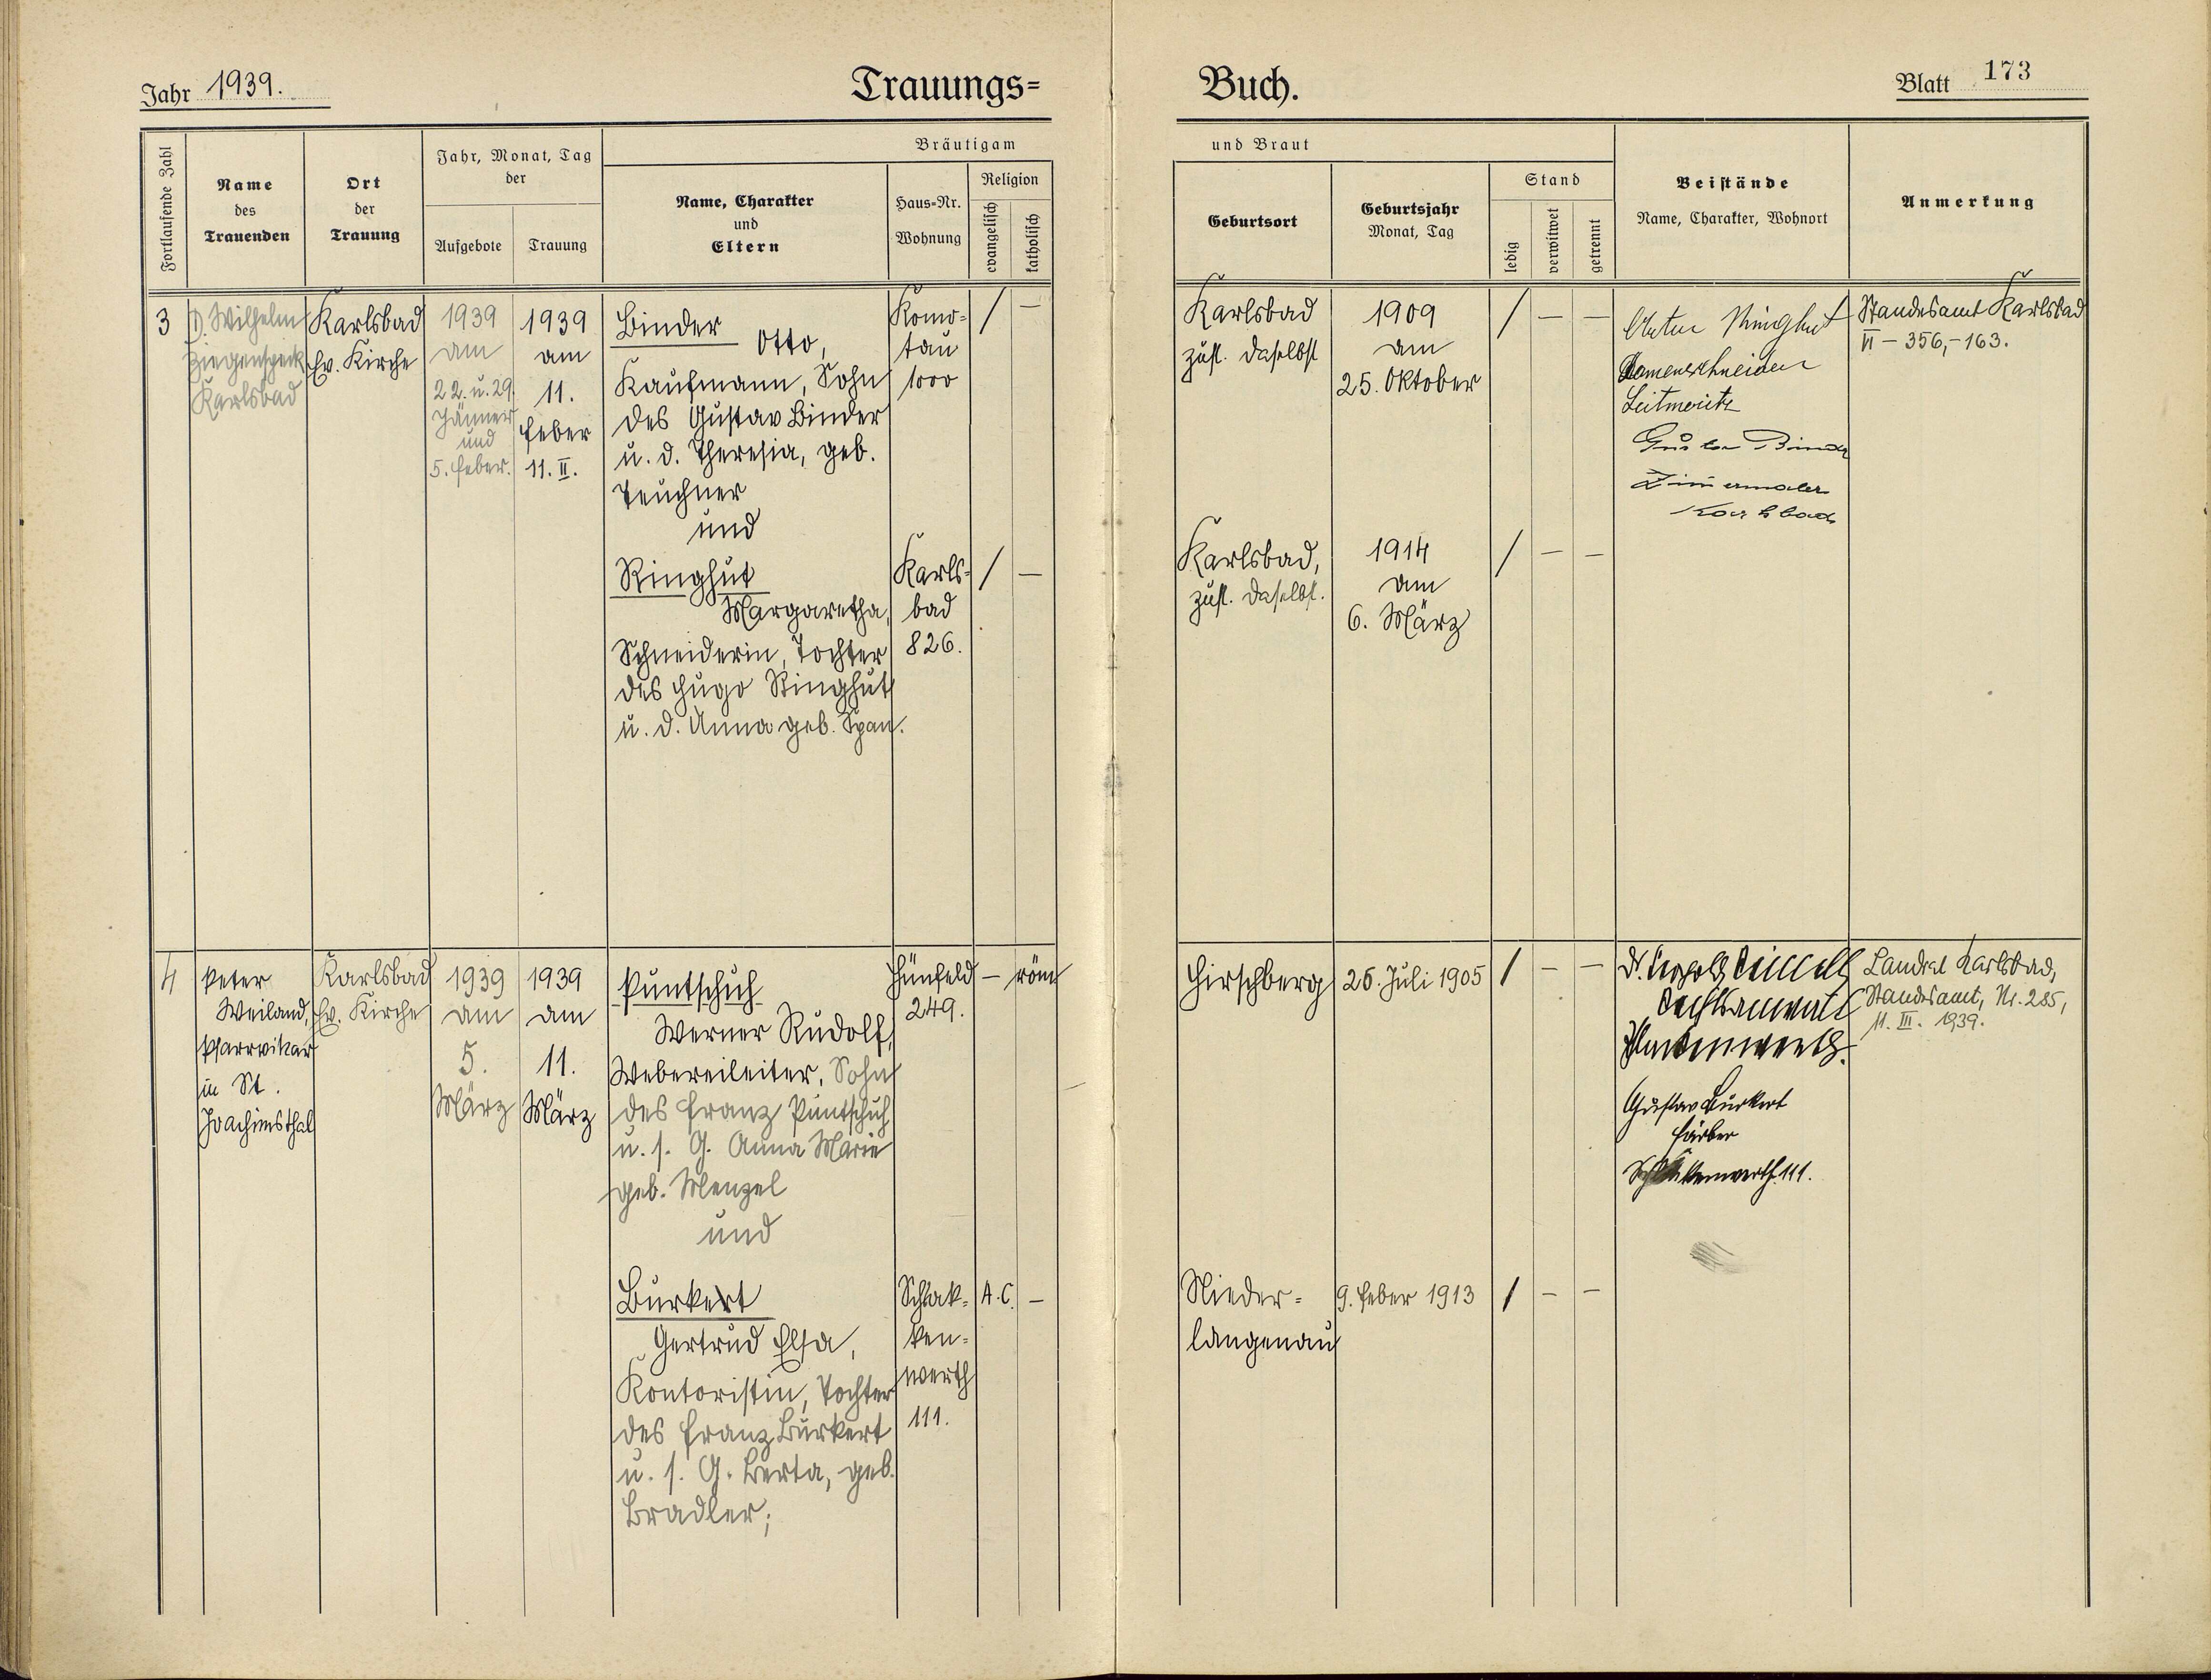 Jahr 1939.
Trauungs=
Buch.
Blatt 173
Fortlaufende Zahl
Name
des
Trauenden
Ort
der
Trauung
Jahr, Monat, Tag
der
Aufgebote
Trauung
Bräutigam
Name, Charakter
und
Eltern
Haus=Nr.
Wohnung
Religion
evangelisch
katholisch
und Braut
Geburtsort
Geburtsjahr
Monat, Tag
Stand
ledig
verwitwet
getrennt
Beistände
Name, Charakter, Wohnort
Anmerkung
3
Wilhelm
Ziegenspeck
Karlsbad
Karlsbad
Ev. Kirche
1939
am
22. u. 29.
Jänner
und
5. Feber.
1939
am
11.
Feber
11. II.
Binder
Otto,
Kaufmann, Sohn
des Gustav Binder
u. d. Theresia, geb.
Teuchner
und
Ringhut
Margaretha,
Schneiderin, Tochter
des Hugo Ringhut
u. d. Anna geb. Span.
Komo=
tau
1000
/ —
Karls=
bad
826.
/ —
Karlsbad
zust. daselbst
1909
am
25. Oktober
/ — —
Karlsbad,
zust. daselbst.
1914
am
6. März
/ — —
Ringhut
Damenschneider
Leitmeritz
Gustav Binder
Zimmermaler
Karlsbad
Standesamt Karlsbad
VI – 356, – 163.
4
Peter
Weiland,
Pfarrvikar
in St.
Joachimsthal
Karlsbad
Ev. Kirche
1939
am
5.
März
1939
am
11.
März
Puntschuh
Werner Rudolf,
Webereileiter, Sohn
des Franz Puntschuh
u. s. G. Anna Marie
geb. Menzel
und
Burkert
Gertrud Elsa,
Kontoristin, Tochter
des Franz Burkert
u. s. G. Berta, geb.
Bradler;
Hünfeld
249.
— röm
Schlak=
ken=
werth
111.
A. C. —
Hirschberg
26. Juli 1905
/ — —
Nieder=
langenau
9. Feber 1913
/ — —
Dr. Leopold
Rechtsanwalt
Schlackenwerth.
Gustav Burkert
Färber
Schlakkenwerth 111.
Landrat Karlsbad,
Standesamt, Nr. 285,
11. III. 1939.